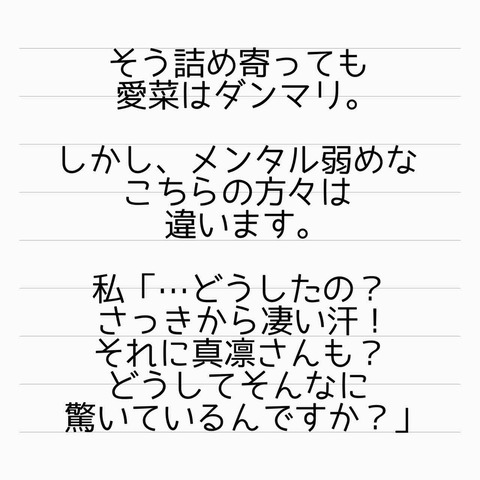 そう詰め寄っても
愛菜はダンマリ。
しかし、メンタル弱めな
こちらの方々は
違います。
私「…どうしたの？
さっきから凄い汗！
それに真凛さんも？
どうしてそんなに
驚いているんですか？」